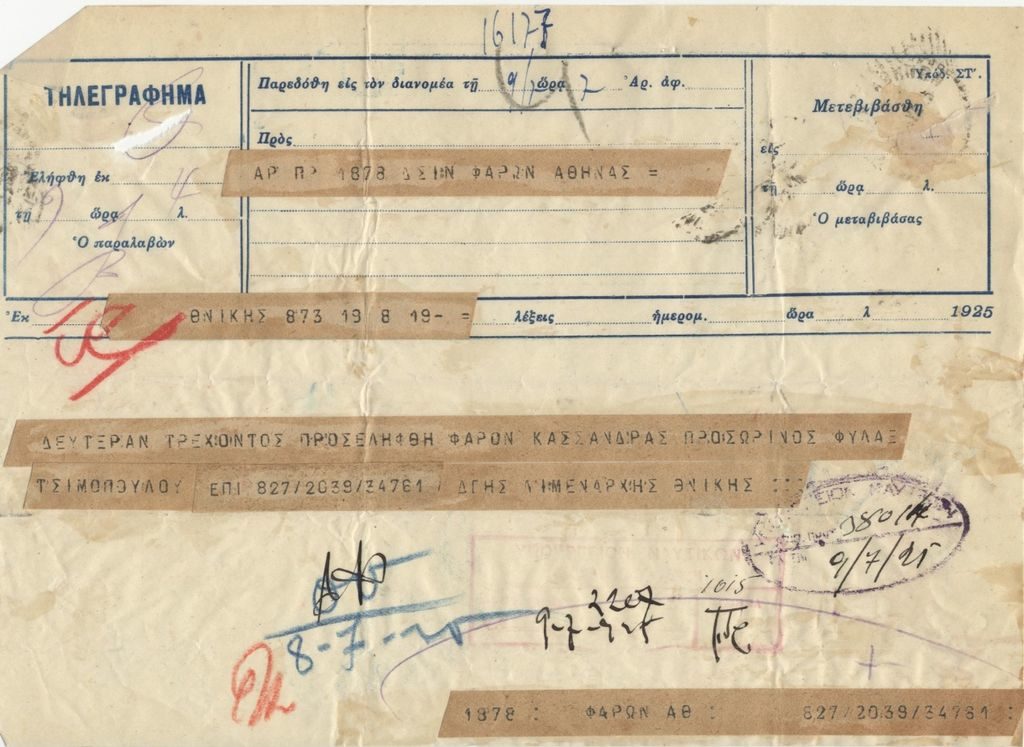 16177
ΤΗΛΕΓΡΑΦΗΜΑ
Ἐλήφθη ἐκ
τῇ ὥρᾳ λ.
Ὁ παραλαβὼν
Παρεδόθη εἰς τὸν διανομέα τῇ 9/7 ὥρᾳ 7 Ἀρ. ἀφ.
Πρὸς
ΑΡ ΠΡ 1878 ΔΣΙΝ ΦΑΡΩΝ ΑΘΗΝΑΣ =
Ὑπόδ. ΣΤ'.
Μετεβιβάσθη
εἰς
τῇ ὥρᾳ λ.
Ὁ μεταβιβάσας
Ἐκ ΘΝΙΚΗΣ 873 19 8 19- = λέξεις ἡμερομ. ὥρᾳ λ 1925
ΔΕΥΤΕΡΑΝ ΤΡΕΧΟΝΤΟΣ ΠΡΟΣΕΛΗΦΘΗ ΦΑΡΟΝ ΚΑΣΣΑΝΔΡΑΣ ΠΡΟΣΩΡΙΝΟΣ ΦΥΛΑΞ
ΤΣΙΜΟΠΟΥΛΟΥ ΕΠΙ 827/2039/34761 / ΔΓΗΣ ΛΙΜΕΝΑΡΧΗΣ ΘΝΙΚΗΣ :::
9/7/25
8-7-25
2207
9-7-925
1015
ΥΠΟΥΡΓΕΙΟΝ ΝΑΥΤΙΚΩΝ
1878 : ΦΑΡΩΝ ΑΘ : 827/2039/34761 :